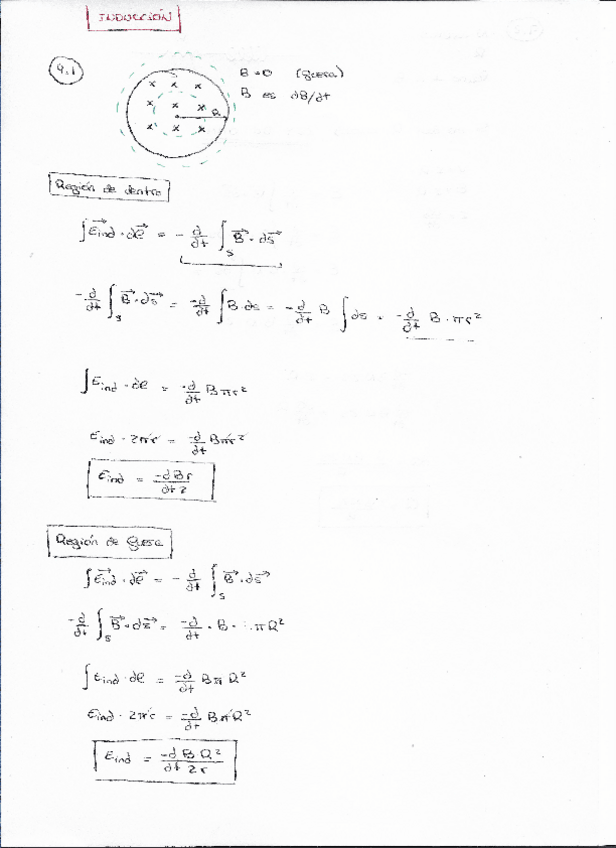 INDUCCIÓN
9.1
B=0 (fuera)
B es dB/dt
R
Región de dentro
∫ E⃗ind · dℓ⃗ = - d/dt ∫s B⃗ · ds⃗
-d/dt ∫s B⃗ · ds⃗ = -d/dt ∫ B · ds = -d/dt B ∫ ds = -d/dt B · πr²
∫ Eind · dℓ = -d/dt B πr²
Eind · 2πr = -d/dt Bπr²
Eind = -dBr/dt 2
Región de fuera
∫ E⃗ind · dℓ⃗ = - d/dt ∫s B⃗ · ds⃗
-d/dt ∫s B⃗ · ds⃗ = -d/dt · B · πR²
∫ Eind · dℓ = -d/dt BπR²
Eind · 2πr = -d/dt BπR²
Eind = -dBR²/dt 2r